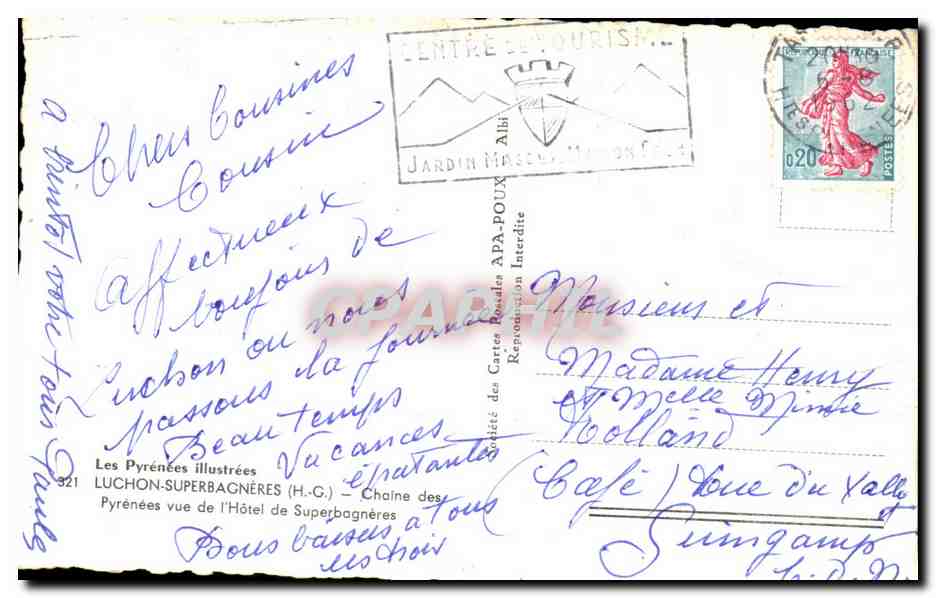 CENTRE DE TOURISME
JARDIN MASSEY
REPUBLIQUE FRANÇAISE
0,20
POSTES
Chers Cousines
Cousin
Affectueux
bonjour de
Luchon ou nous
passons la journée
Beau temps
Vacances
épatantes
Bons baisers à tous
les trois
a bientot votre
Les Pyrénées illustrées
321 LUCHON-SUPERBAGNÈRES (H.-G.) — Chaîne des
Pyrénées vue de l'Hôtel de Superbagnères
Société des Cartes Postales APA-POUX Albi
Reproduction Interdite
CPARAMA
Monsieur et
Madame Henry
et Melle Minnie
Holland
(Café) Rue du Vally
Guingamp
C. D. N.